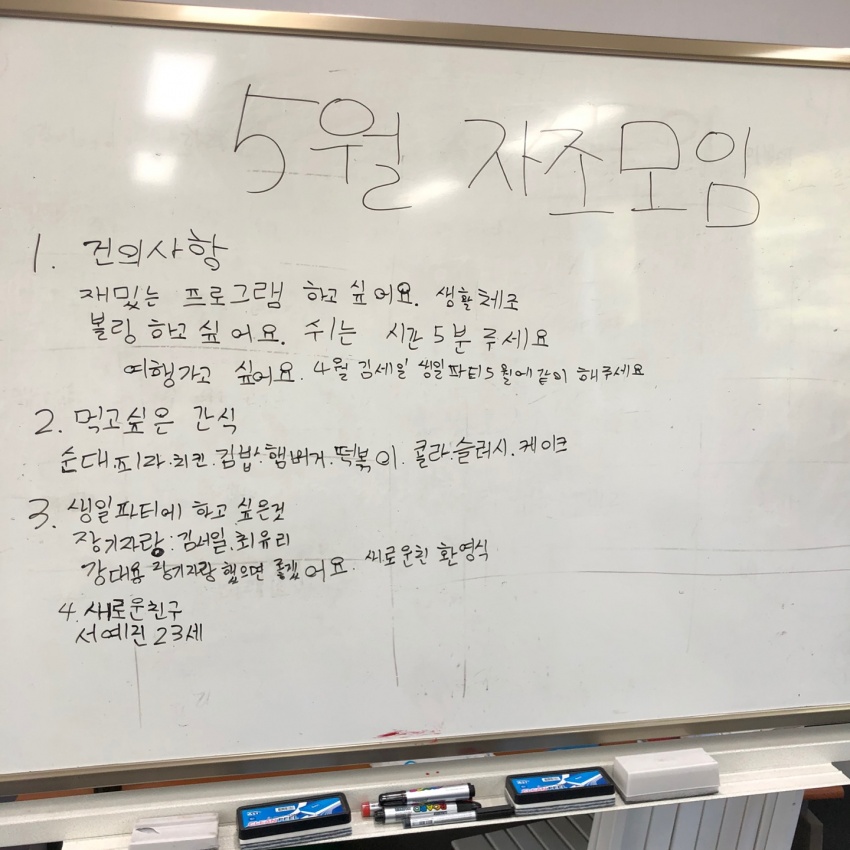 5월 자조모임
1. 건의사항
재밌는 프로그램 하고 싶어요. 생활체조
볼링 하고 싶어요. 쉬는 시간 5분 주세요
여행가고 싶어요. 4월 김세일 생일파티 5월에 같이 해주세요
2. 먹고싶은 간식
순대.피자.치킨.김밥.햄버거.떡볶이.콜라.슬러시.케이크
3. 생일파티에 하고 싶은것
장기자랑:김세일.최유리
강대용 장기자랑 했으면 좋겠어요. 새로운친 환영식
4. 새로운친구
서예린 23세